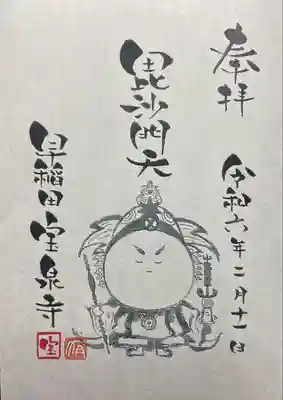 奉拝
令和六年二月十一日
毘沙門天
早稲田宝泉寺
宝